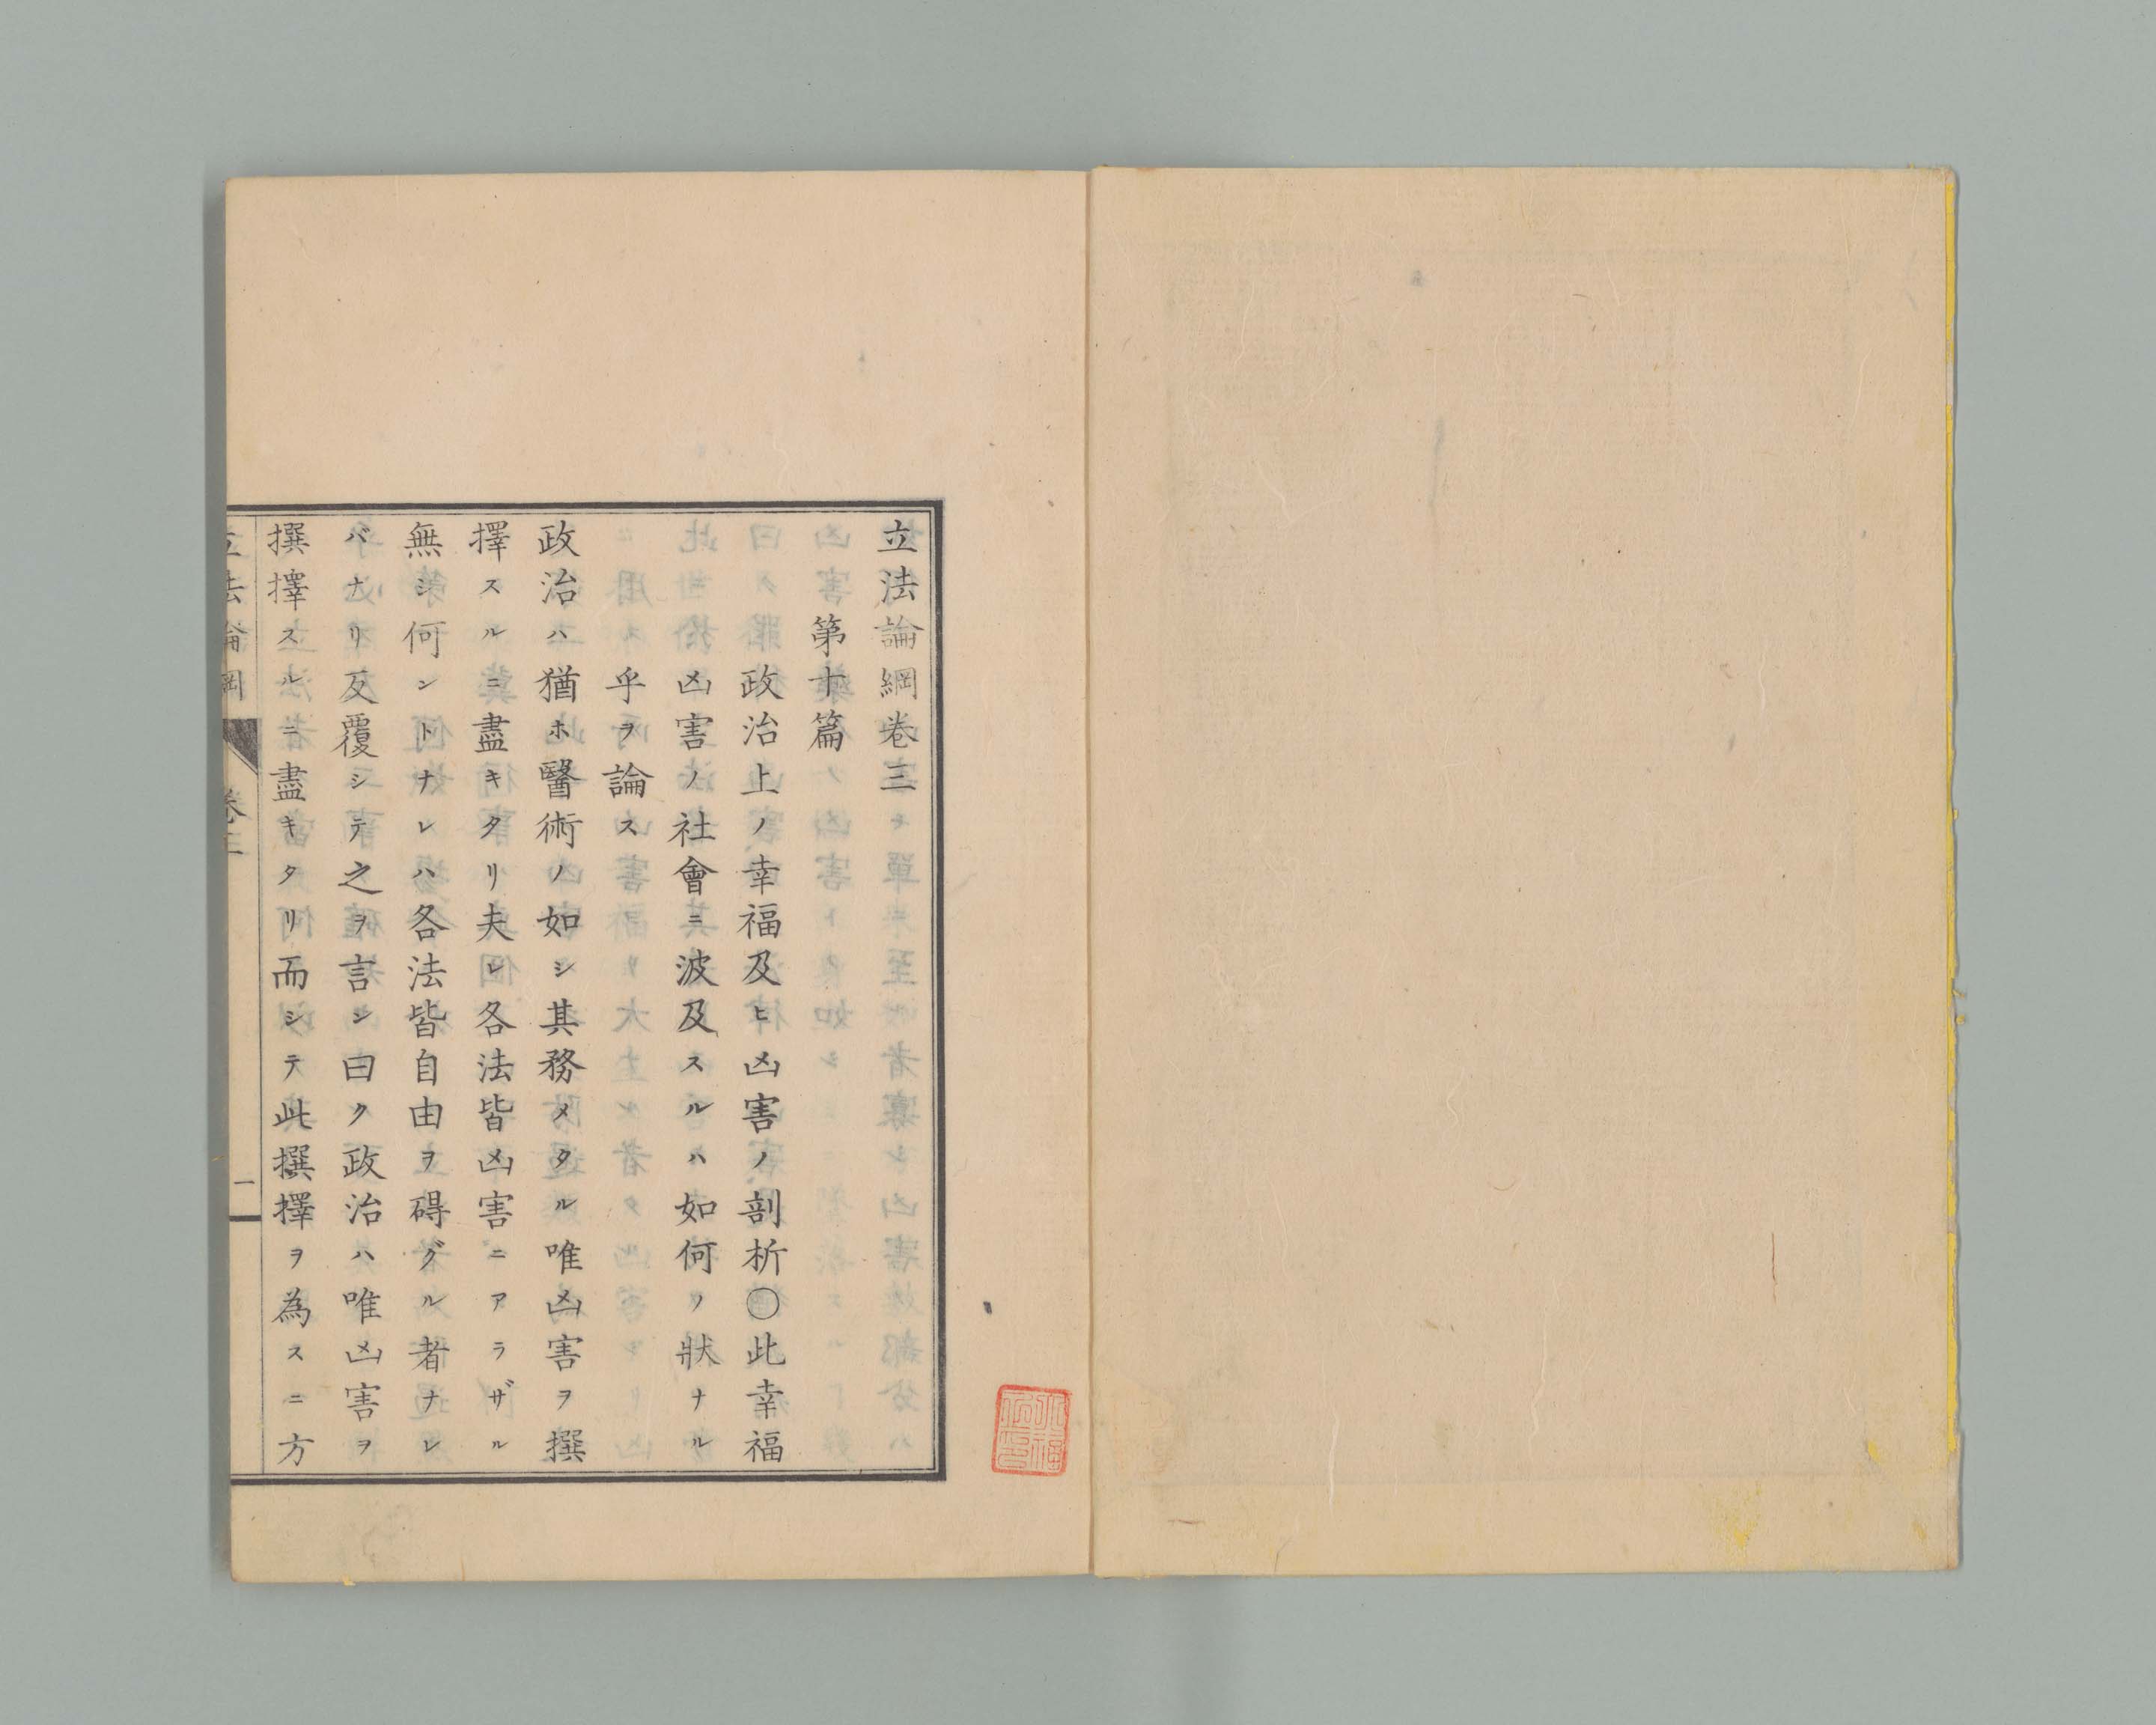 立法論綱卷三
第十篇
政治上ノ幸福及ヒ凶害ノ剖析〇此幸福
凶害ノ社會ニ波及スルハ如何ノ狀ナル
乎ヲ論ス
政治ハ猶ホ醫術ノ如シ其務メタル唯凶害ヲ撰
擇スルニ盡キタリ夫レ各法皆凶害ニアラザル
無シ何ントナレハ各法皆自由ヲ碍グル者ナレ
バナリ反覆シテ之ヲ言シ曰ク政治ハ唯凶害ヲ
撰擇スルニ盡キタリ而シテ此撰擇ヲ為スニ方
立法論綱 卷三 一